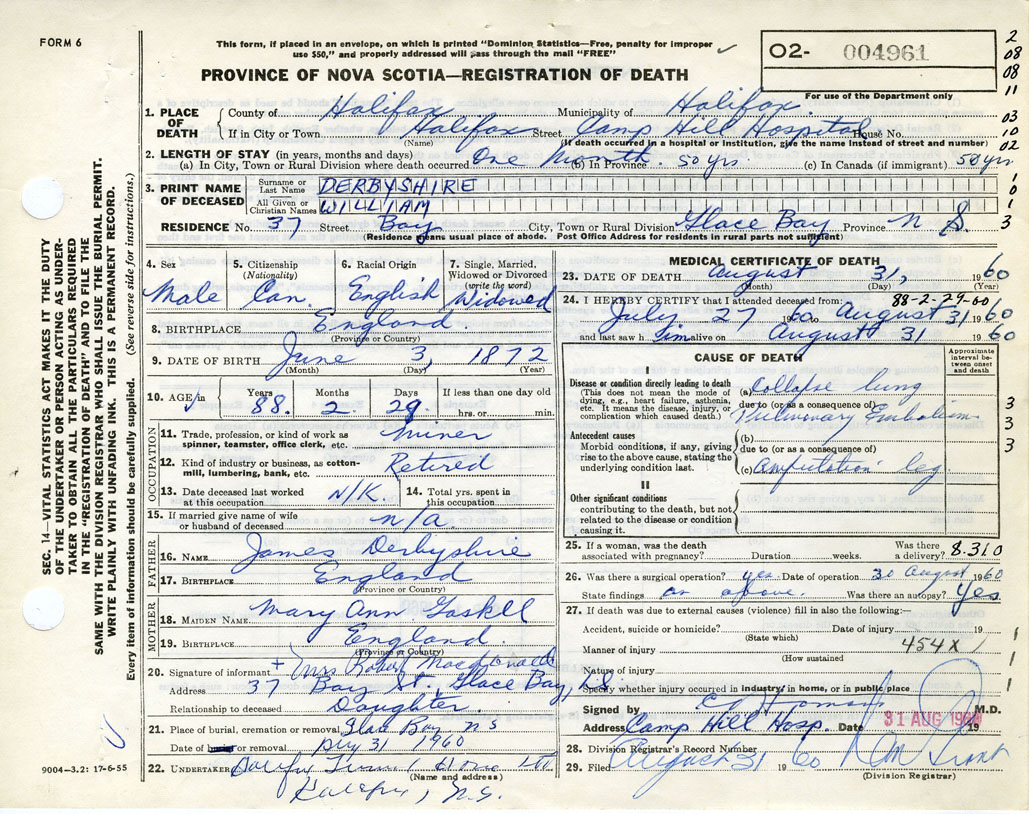 FORM 6
This form, if placed in an envelope, on which is printed "Dominion Statistics—Free, penalty for improper
use $50," and properly addressed will pass through the mail "FREE"
PROVINCE OF NOVA SCOTIA—REGISTRATION OF DEATH
O2- 004961
For use of the Department only
2
08
08
11
03
10
02
1
0
1
3
1. PLACE OF DEATH
County of Halifax Municipality of Halifax.
If in City or Town Halifax Street Camp Hill Hospital House No.
(Name) (If death occurred in a hospital or institution, give the name instead of street and number)
2. LENGTH OF STAY (in years, months and days)
(a) In City, Town or Rural Division where death occurred One Month. (b) In Province 50 yrs (c) In Canada (if immigrant) 50 yrs
3. PRINT NAME OF DECEASED
Surname or Last Name DERBYSHIRE
All Given or Christian Names WILLIAM
RESIDENCE No. 37 Street Bay City, Town or Rural Division Glace Bay Province N S.
(Residence means usual place of abode. Post Office Address for residents in rural parts not sufficient)
4. Sex
Male
5. Citizenship
(Nationality)
Can.
6. Racial Origin
English
7. Single, Married,
Widowed or Divorced
(write the word)
Widowed
8. BIRTHPLACE England.
(Province or Country)
9. DATE OF BIRTH June 3, 1872
(Month) (Day) (Year)
10. AGE in Years Months Days If less than one day
88. 2. 29. hrs. or min.
OCCUPATION
11. Trade, profession, or kind of work as
spinner, teamster, office clerk, etc. Miner
12. Kind of industry or business, as cotton-
mill, lumbering, bank, etc. Retired
13. Date deceased last worked
at this occupation N/K.
14. Total yrs. spent in
this occupation.
15. If married give name of wife
or husband of deceased n/a.
FATHER
16. NAME James Derbyshire
17. BIRTHPLACE England
(Province or Country)
MOTHER
18. MAIDEN NAME Mary Ann Gaskell
19. BIRTHPLACE England.
(Province or Country)
20. Signature of informant + Mrs Robert Macdonald
Address 37 Bay St., Glace Bay, N.S.
Relationship to deceased Daughter.
21. Place of burial, cremation or removal Glace Bay N S
Date of burial or removal Aug 31 1960
22. UNDERTAKER
(Name and address)
Halifax, N.S.
9004—3.2: 17-6-55
MEDICAL CERTIFICATE OF DEATH
23. DATE OF DEATH August 31, 1960
(Month) (Day) (Year)
88-2-29-00
24. I HEREBY CERTIFY that I attended deceased from:
July 27 1960 to August 31 1960
and last saw him alive on August 31 1960
CAUSE OF DEATH
Approximate
interval between
onset
and death
I
Disease or condition directly leading to death
(This does not mean the mode of
dying, e.g., heart failure, asthenia,
etc. It means the disease, injury, or
complication which caused death.)
(a) Collapse lung
due to (or as a consequence of)
Pulmonary Embolism
Antecedent causes
Morbid conditions, if any, giving
rise to the above cause, stating the
underlying condition last.
(b)
due to (or as a consequence of)
(c) Amputation leg.
3
3
3
3
II
Other significant conditions
contributing to the death, but not
related to the disease or condition
causing it.
25. If a woman, was the death
associated with pregnancy? Duration weeks. Was there
a delivery? 8.310
26. Was there a surgical operation? yes. Date of operation 30 August 1960
State findings as above. Was there an autopsy? Yes.
27. If death was due to external causes (violence) fill in also the following:—
Accident, suicide or homicide? Date of injury 19
(State which)
Manner of injury 454X
(How sustained
Nature of injury
Specify whether injury occurred in industry, in home, or in public place
1
1
1
Signed by M.D.
Address Camp Hill Hosp. Date 31 AUG 1960 19
28. Division Registrar's Record Number
29. Filed August 31 1960
(Division Registrar)
SEC. 14—VITAL STATISTICS ACT MAKES IT THE DUTY
OF THE UNDERTAKER OR PERSON ACTING AS UNDER-
TAKER TO OBTAIN ALL THE PARTICULARS REQUIRED
IN THE "REGISTRATION OF DEATH" AND FILE THE
SAME WITH THE DIVISION REGISTRAR WHO SHALL ISSUE THE BURIAL PERMIT.
WRITE PLAINLY WITH UNFADING INK. THIS IS A PERMANENT RECORD.
Every item of information should be carefully supplied. (See reverse side for instructions.)